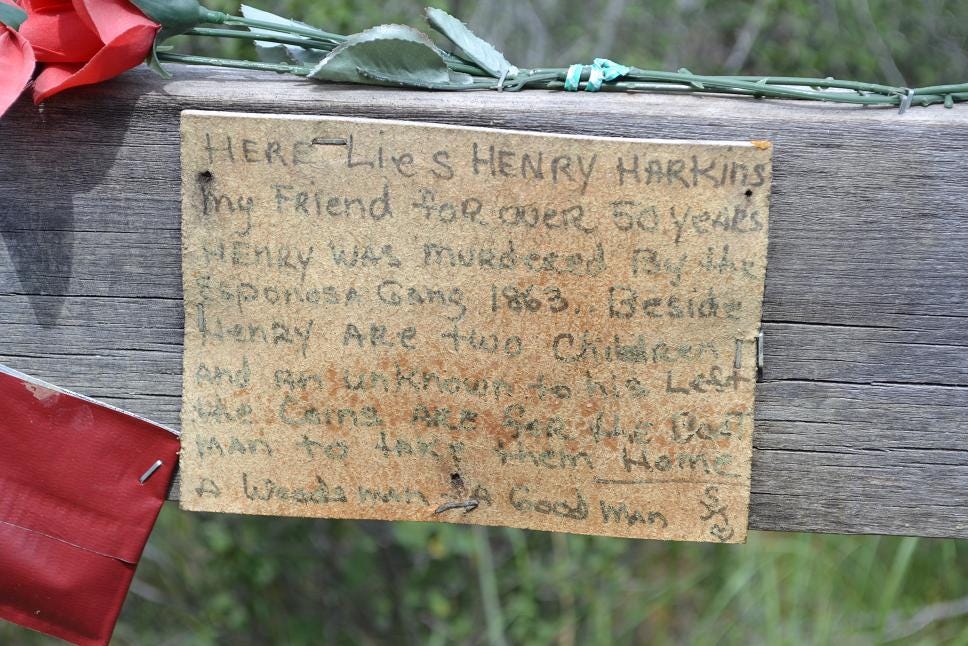 HERE Lies HENRY HARKins
My Friend foR over 50 years
HENRY WAS MURdered By the
Esponosa Gang 1863.. Beside
Henry ARe two Children
And an unknown to his Left
the Coins ARe foR the Boat
MAN to take them Home
A Woodsman - A Good Man